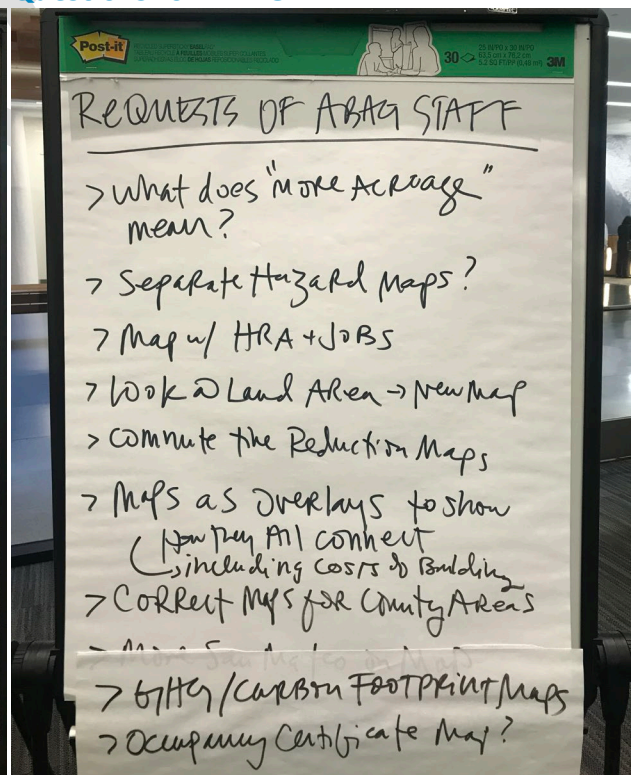 Post-it
30
25 IN/PO x 30 IN/PO
63,5 cm x 76,2 cm
5.2 SQ FT/PP (0,48 m²)
3M
REQUESTS OF ABAG STAFF
> What does "More Acreage"
mean?
> Separate Hazard Maps?
> Map w/ HRA + JOBS
> look @ Land Area → New Map
> Commute time Reduction Maps
> Maps as overlays to show
How they All connect
↳ including costs of Building
> Correct Maps for County Areas
> More San Mateo on Map
> GHG / Carbon FOOTPRINT Maps
> Occupancy Certificate Map?